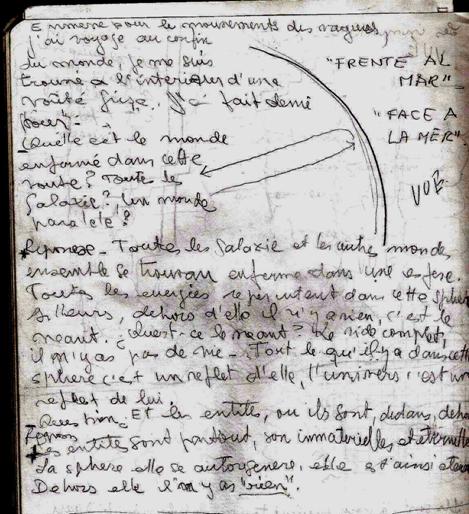 Emmené pour le mouvements des vagues,
j'ai voyage au confin
du monde, je me suis
trouve a l'interieur d'une
voûte fixe. J'a fait demi
tour.
Quelle est le monde
enfermé dans cette
voute? Toute le
Galaxie? Un monde
paralele?
"FRENTE AL
MAR"
"FACE A
LA MER"
Reponse - Toutes les Galaxie et les autres mondes
ensemble se trouvau enferme dans une esfere.
Toutes les energies repercutent dans cette sphere
Ailleurs, dehors d'elle il n'y a rien, c'est le
neant. ¿Quest-ce le neant? Le vide complet,
il n'y as pas de vie - Tout le qu'il y a dans cette
sphere c'est un reflet d'elle, l'univers c'est un
reflet de lui.
Question. Et les entités, ou ils sont, dedans, deho
Les entités sont partout, son immaterielles et eternelle
La sphere elle se autogenere, elle est ainsi
Dehors elle il n'y as "rien".